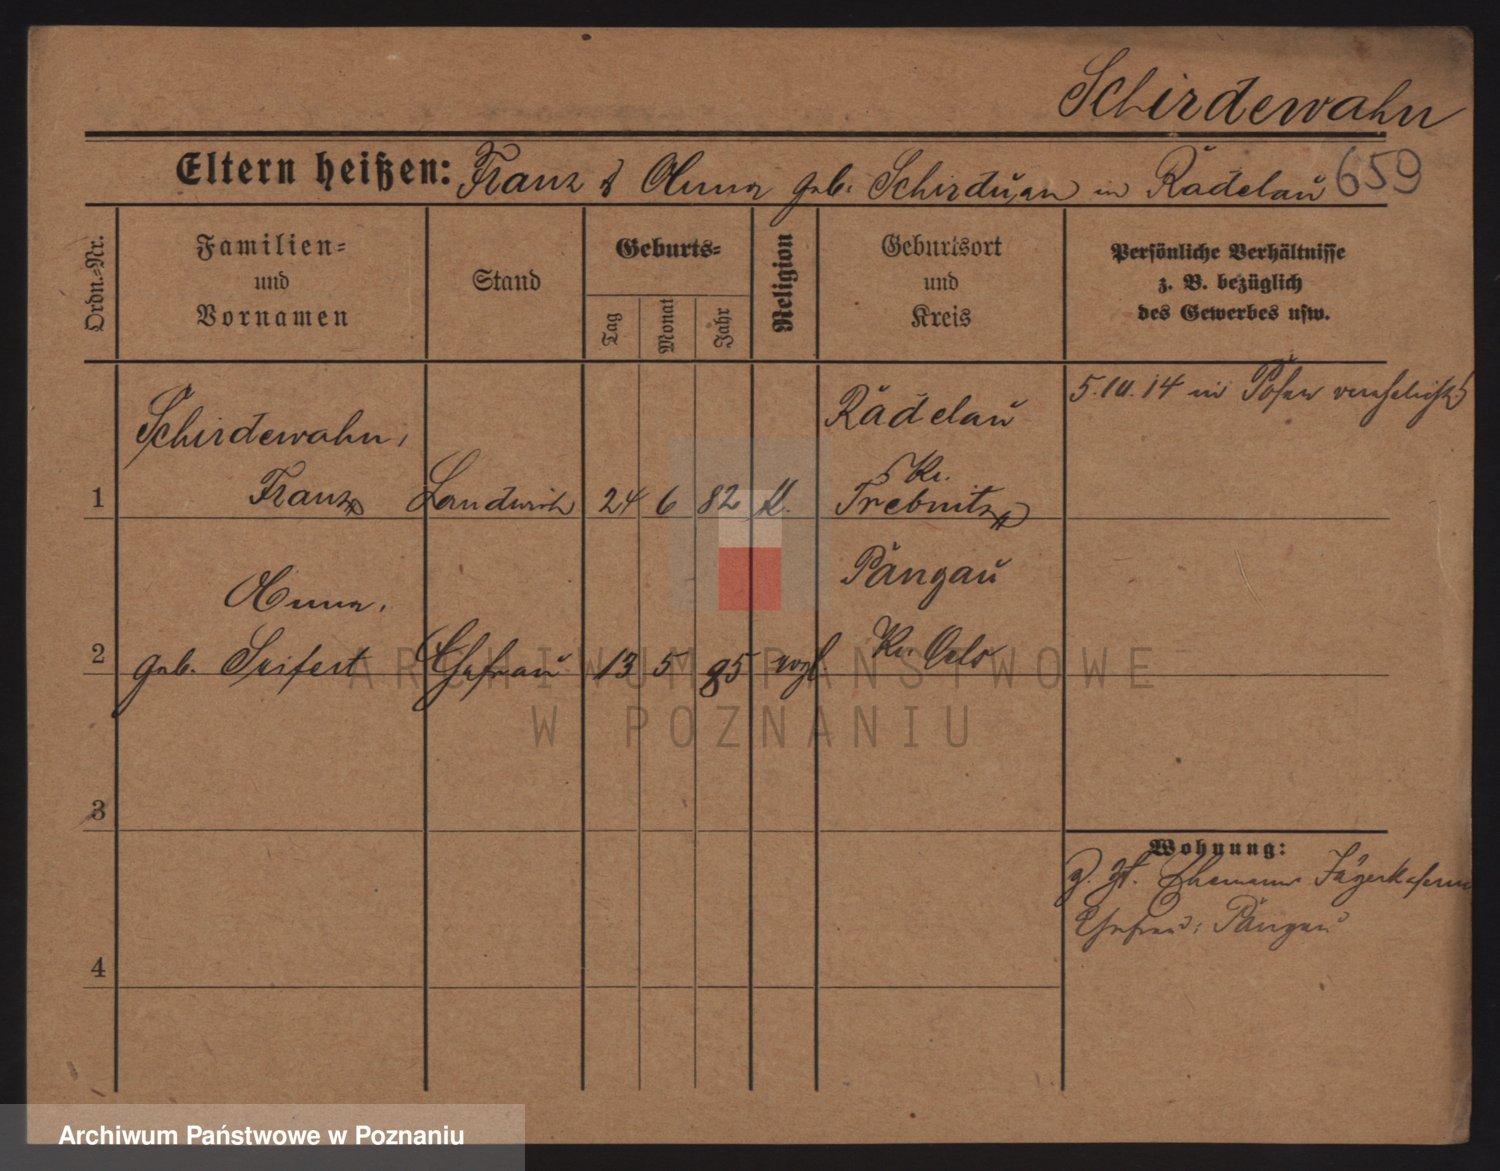 Schirdewahn
Eltern heißen: Franz & Anna geb. Schirduan in Rädelau 659
Ordn.=Nr.
Familien=
und
Vornamen
Stand
Geburts=
Tag
Monat
Jahr
Religion
Geburtsort
und
Kreis
Persönliche Verhältnisse
z. B. bezüglich
des Gewerbes usw.
1
Schirdewahn,
Franz
Landwirth
24 6 82 K.
Rädelau
Kr.
Trebnitz
5.10.14 in Posen verehelicht
2
Anna,
geb. Seifert
Ehefrau
13 5 85 evgl.
Pängau
Kr. Oels
3
4
Wohnung:
z. Zt. Ehemann Jägerkaserne
Ehefrau: Pängau
ARCHIWUM PAŃSTWOWE
W POZNANIU
Archiwum Państwowe w Poznaniu